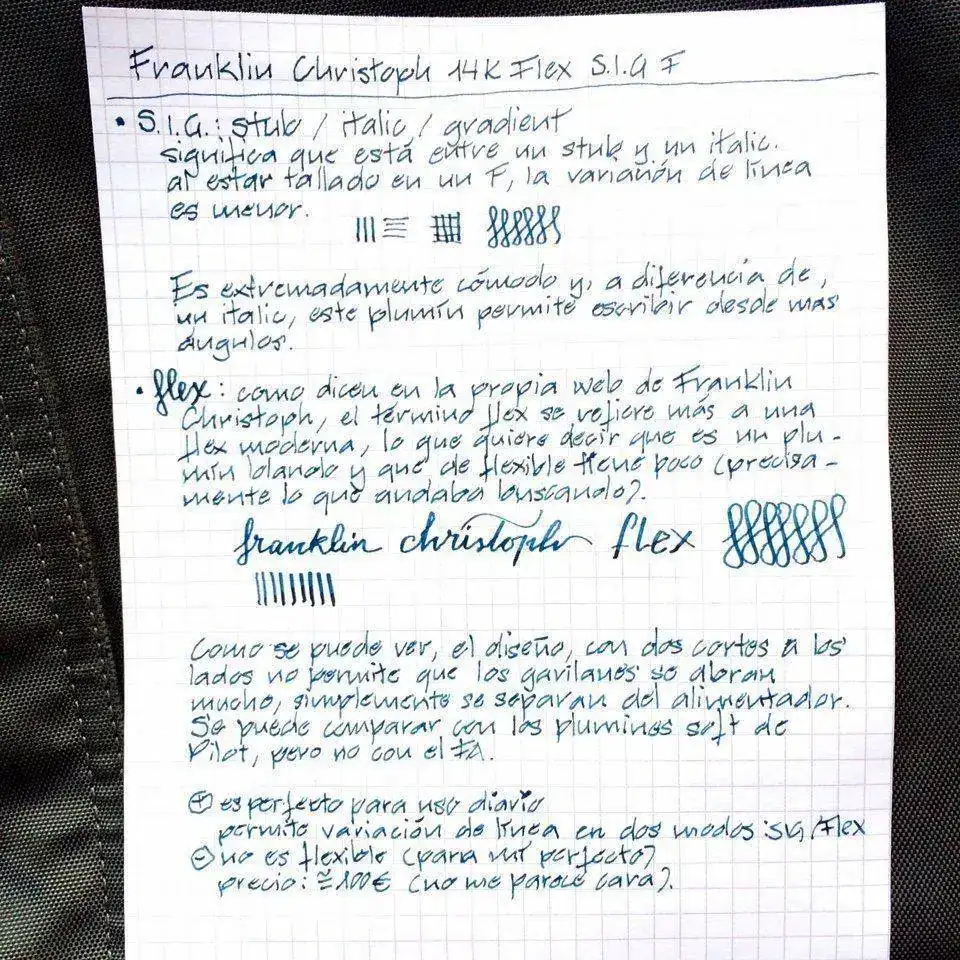 Franklin Christoph 14K Flex S.I.G F
• S.I.G.: stub / italic / gradient
significa que está entre un stub y un italic.
al estar tallado en un F, la variación de línea
es menor.
Es extremadamente cómodo y, a diferencia de
un italic, este plumín permite escribir desde más
ángulos.
• flex: como dicen en la propia web de Franklin
Christoph, el término flex se refiere más a una
flex moderna, lo que quiere decir que es un plu-
mín blando y que de flexible tiene poco (precisa-
mente lo que andaba buscando).
franklin christoph flex
Como se puede ver, el diseño, con dos cortes a los
lados no permite que los gavilanes se abran
mucho, simplemente se separan del alimentador.
Se puede comparar con los plumines soft de
Pilot, pero no con el FA.
⊕ es perfecto para uso diario
permite variación de línea en dos modos: SIG/Flex
⊖ no es flexible (para mí perfecto)
precio: ≅100€ (no me parece cara).